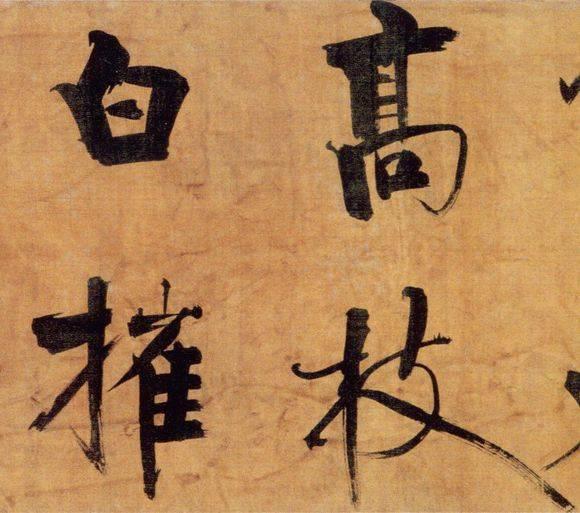 高枝
白摧